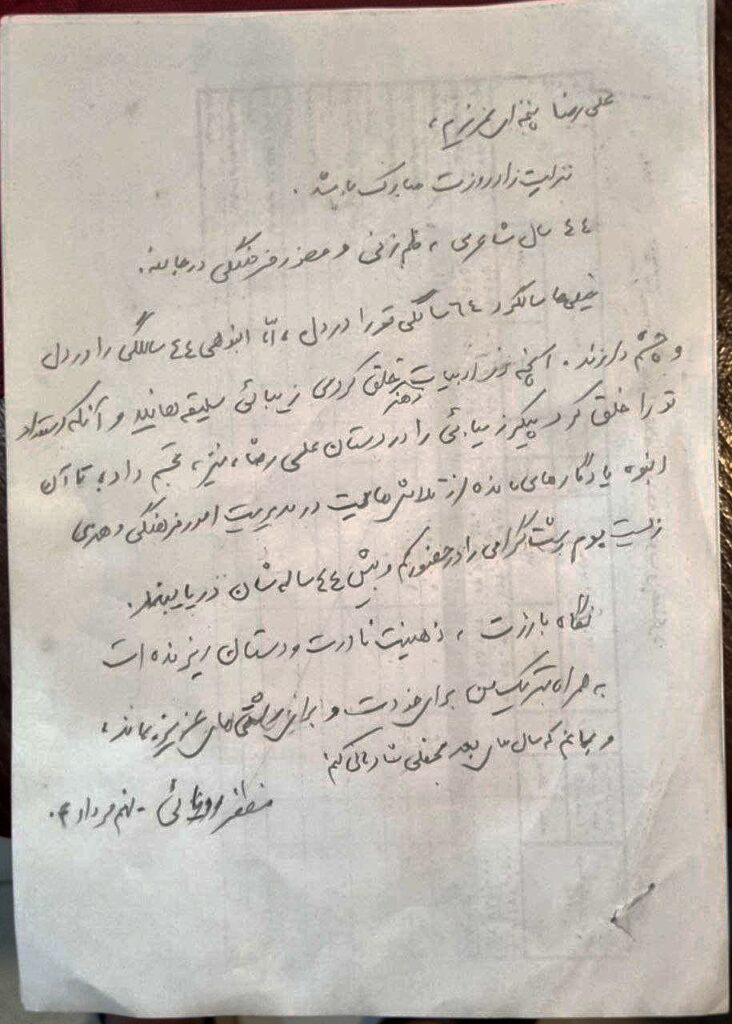 علی رضا پنجه‌ای عزیزم،
نزلیت زادروزت مبارک باشد.
٤٤ سال شاعری، قلم زنی و حضور فرهنگی در جامعه.
خیلی‌ها سالگرد ٦٤ سالگی تو را در دل، امّا انبوهی ٤٤ سالگی را در دل
و چشم دارند. آنچه تو از ادبیات و هنر خلق کردی زیبائی سلیقه‌هایند و آنکه استعداد
تو را خلق کرد پیکر زیبائی را در دستان علی رضا، نیز، تجسّم داد، تا آن
انبوه یادگارهای مانده از تلاش‌هایت در مدیریت امور فرهنگی و هنری
زیست بوم رشت گرامی را در حضور کم و بیش ٤٤ ساله‌شان دریابند.
نگاه بارزت، ذهنیت نادرت و دستان ریزنده‌ات
به همراه تبریک من برای خودت و برای رشتی‌های عزیز بماند،
و بمانم که سال‌های بعد محفلی شادمانی کنم
مظفر رویائی - نهم مرداد ۰۴